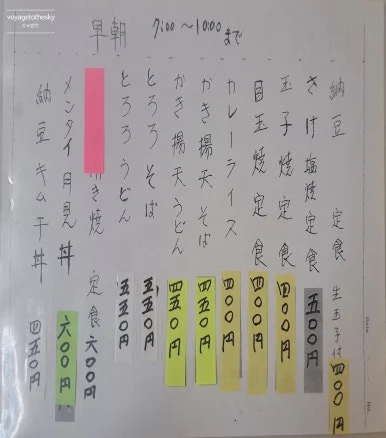 voyagetothesky
早朝 7:00～10:00まで
納豆 定食 生玉子付 四〇〇円
さけ塩焼定食 五〇〇円
玉子焼定食 四〇〇円
目玉焼定食 四〇〇円
カレーライス 四〇〇円
かき揚天そば 四五〇円
かき揚天うどん 四五〇円
とろろそば 五五〇円
とろろうどん 五五〇円
き焼 定食 六〇〇円
メンタイ月見丼 六〇〇円
納豆キムチ丼 四五〇円